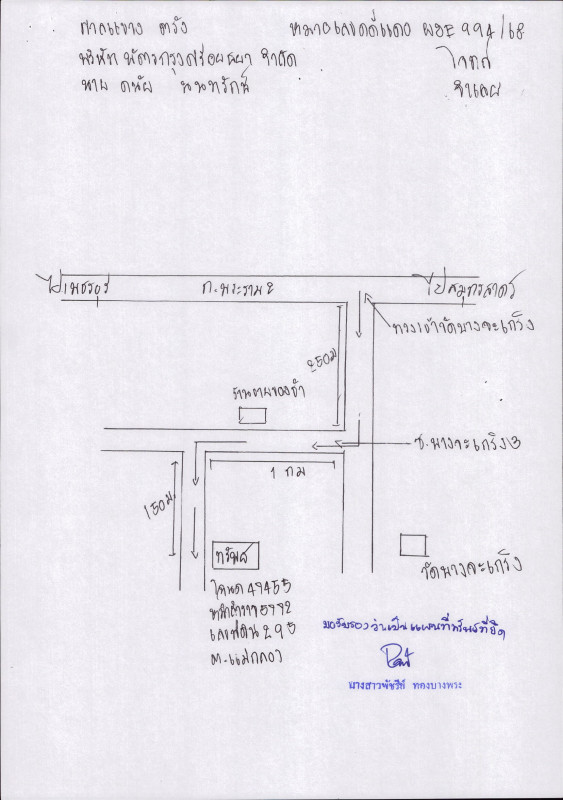 ศาลแขวง ตรัง หมายเลขคดีแดง ผบE 994/68
บริษัท บัตรกรุงศรีอยุธยา จำกัด โจทก์
นาย ดนัย นนทรักษ์ จำเลย
ไปเพชรบุรี ถ.พระราม 2 ไปสมุทรสาคร
ทางเข้าวัดบางจะเกร็ง
250 ม
ร้านขายของชำ
ซ.บางจะเกร็ง 3
1 กม
150 ม.
ทรัพย์
วัดบางจะเกร็ง
โฉนด 49455
หน้าสำรวจ 5992
เลขที่ดิน 295
ต.แม่กลอง
ขอรับรองว่าเป็นแผนที่ทรัพย์ที่ยึด
นางสาวพัชรีย์ ทองบางพระ